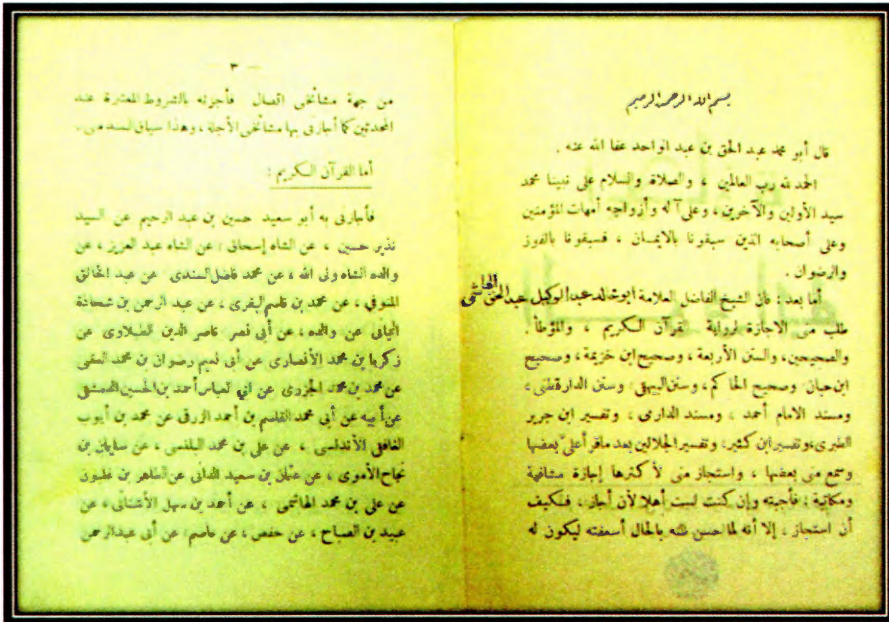 بسم الله الرحمن الرحيم
قال أبو محمد عبد الحق بن عبد الواحد عفا الله عنه .
الحمد لله رب العالمين ، والصلاة والسلام على نبينا محمد
سيد الأولين والآخرين ، وعلى آله وأزواجه أمهات المؤمنين
وعلى أصحابه الذين سبقونا بالايمان ، فسبقونا بالفوز
والرضوان .
أما بعد : فان الشيخ الفاضل العلامة ابو خالد عبد الوكيل عبد الحق الهاشمي
طلب منى الاجازة لرواية القرآن الكريم ، والمؤطأ .
والصحيحين، والسنن الأربعة ، وصحيح ابن خزيمة ، وصحيح
ابن حبان وصحيح الحاكم ، وسنن البيهقى ، وسنن الدارقطنى ،
ومسند الامام أحمد ، ومسند الدارى ، وتفسير ابن جرير
الطبرى، وتفسير ابن كثير، وتفسير الجلالين بعد ماقرأ علىّ بعضها
وسمع منى بعضها ، واستجاز منى لأكثرها إجازة مشافهة
ومكاتبة ؛ فأجبته وإن كنت لست أهلا لأن أجاز ، فلكيف
أن استجاز ، إلا أنه لما حسن ظنه بالحال أسعفته ليكون له
— ٣ —
من جهة مشائخى اتصال فأجزته بالشروط المعتبرة عند
المحدثين كما أجازنى بها مشائخى الأجلة ، وهذا سياق السند منى .
أما القرآن الكريم :
فأجازنى به أبو سعيد حسين بن عبد الرحيم عن السيد
نذير حسين ، عن الشاه إسحاق ؛ عن الشاه عبد العزيز ، عن
والده الشاه ولى الله ، عن محمد فاضل السندى عن عبد الخالق
المنوفي ، عن محمد بن قاسم البقرى ، عن عبد الرحمن بن شحاذة
اليمانى عن والده ، عن أبى نصر ناصر الدين الطبلاوى عن
زكريا بن محمد الأنصارى عن أبى نعيم رضوان بن محمد العقبى
عن محمد بن محمد الجزرى عن ابي العباس أحمد بن الحسين الدمشقى
عن أبيه عن أبى محمد القاسم بن أحمد الورقى عن محمد بن أيوب
الغافقى الأندلسى ، عن على بن محمد البلنسى ، عن سليمان بن
نجاح الأموى ، عن عثمان بن سعيد الدانى عن الطاهر بن غلبون
عن على بن محمد الهاشمى ، عن أحمد بن سهل الأشنانى ، عن
عبيد بن الصباح ، عن حفص ، عن عاصم ؛ عن أبى عبد الرحمن